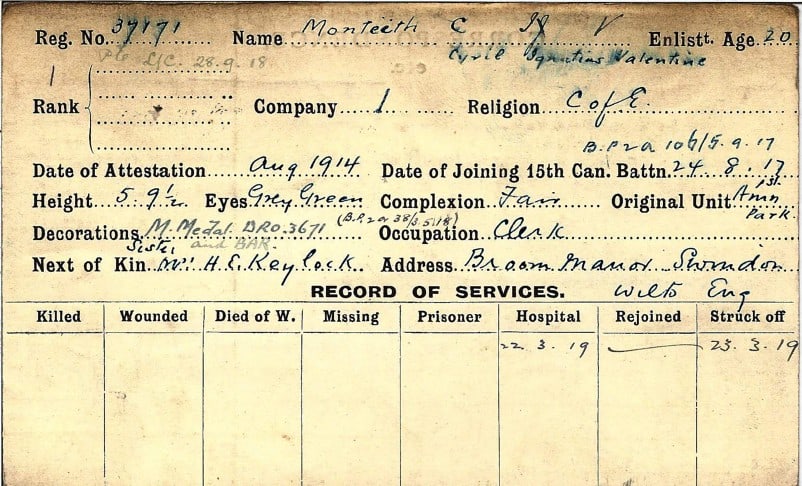 Reg. No. 37171 Name Monteith C I V Enlistt. Age 20
Cyril Ignatius Valentine
Pte L/C. 28.9.18
1
Rank Company 1 Religion C of E.
B.P.2a 106/5.9.17
Date of Attestation Aug 1914 Date of Joining 15th Can. Battn. 24 8.17
Height 5. 9½ Eyes Grey Green Complexion Fair Original Unit 1st Amn Park.
Decorations M. Medal. BRO.3671 (B.P.2a 38/3.5.18) Occupation Clerk
and BAR.
Sister
Next of Kin Mrs H. E. Keylock. Address Broom Manor Swindon
Wilts Eng
RECORD OF SERVICES.
Killed Wounded Died of W. Missing Prisoner Hospital Rejoined Struck off
22.3.19 23.3.19